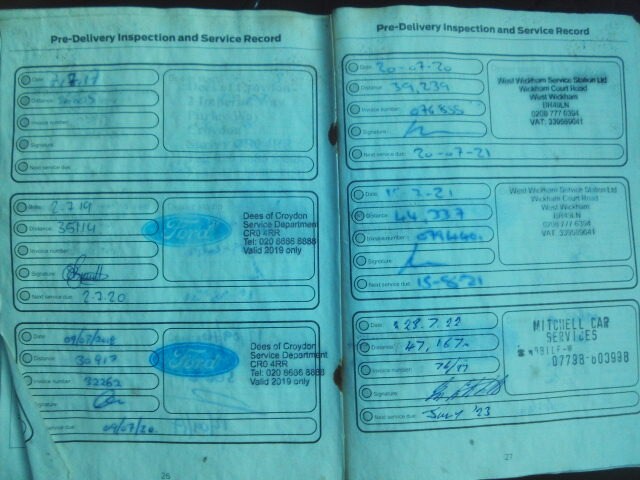 Pre-Delivery Inspection and Service Record
Date
Distance
Invoice number
Signature
Next service due
Date 2.7.19
Distance 35114
Invoice number
Signature
Next service due 2.7.20
Ford
Dees of Croydon
Service Department
CR0 4RR
Tel: 020 8686 8888
Valid 2019 only
Date 09/07/2018
Distance 30917
Invoice number 92262
Signature
service due 09/07/20.
Ford
Dees of Croydon
Service Department
CR0 4RR
Tel: 020 8686 8888
Valid 2019 only
26
Pre-Delivery Inspection and Service Record
Date 20-07-20
Distance 39,239
Invoice number 076855
Signature
Next service due 20-07-21
West Wickham Service Station Ltd
Wickham Court Road
West Wickham
0208 777 6394
Date
Distance 44,337
Invoice number 079440.
Signature
Next service due
West Wickham Service Station Ltd
Wickham Court Road
West Wickham
0208 777 6394
Date 28.7.22
Distance 47,167
Invoice number
Signature
Next service due July '23
MITCHELL CAR
SERVICES
27